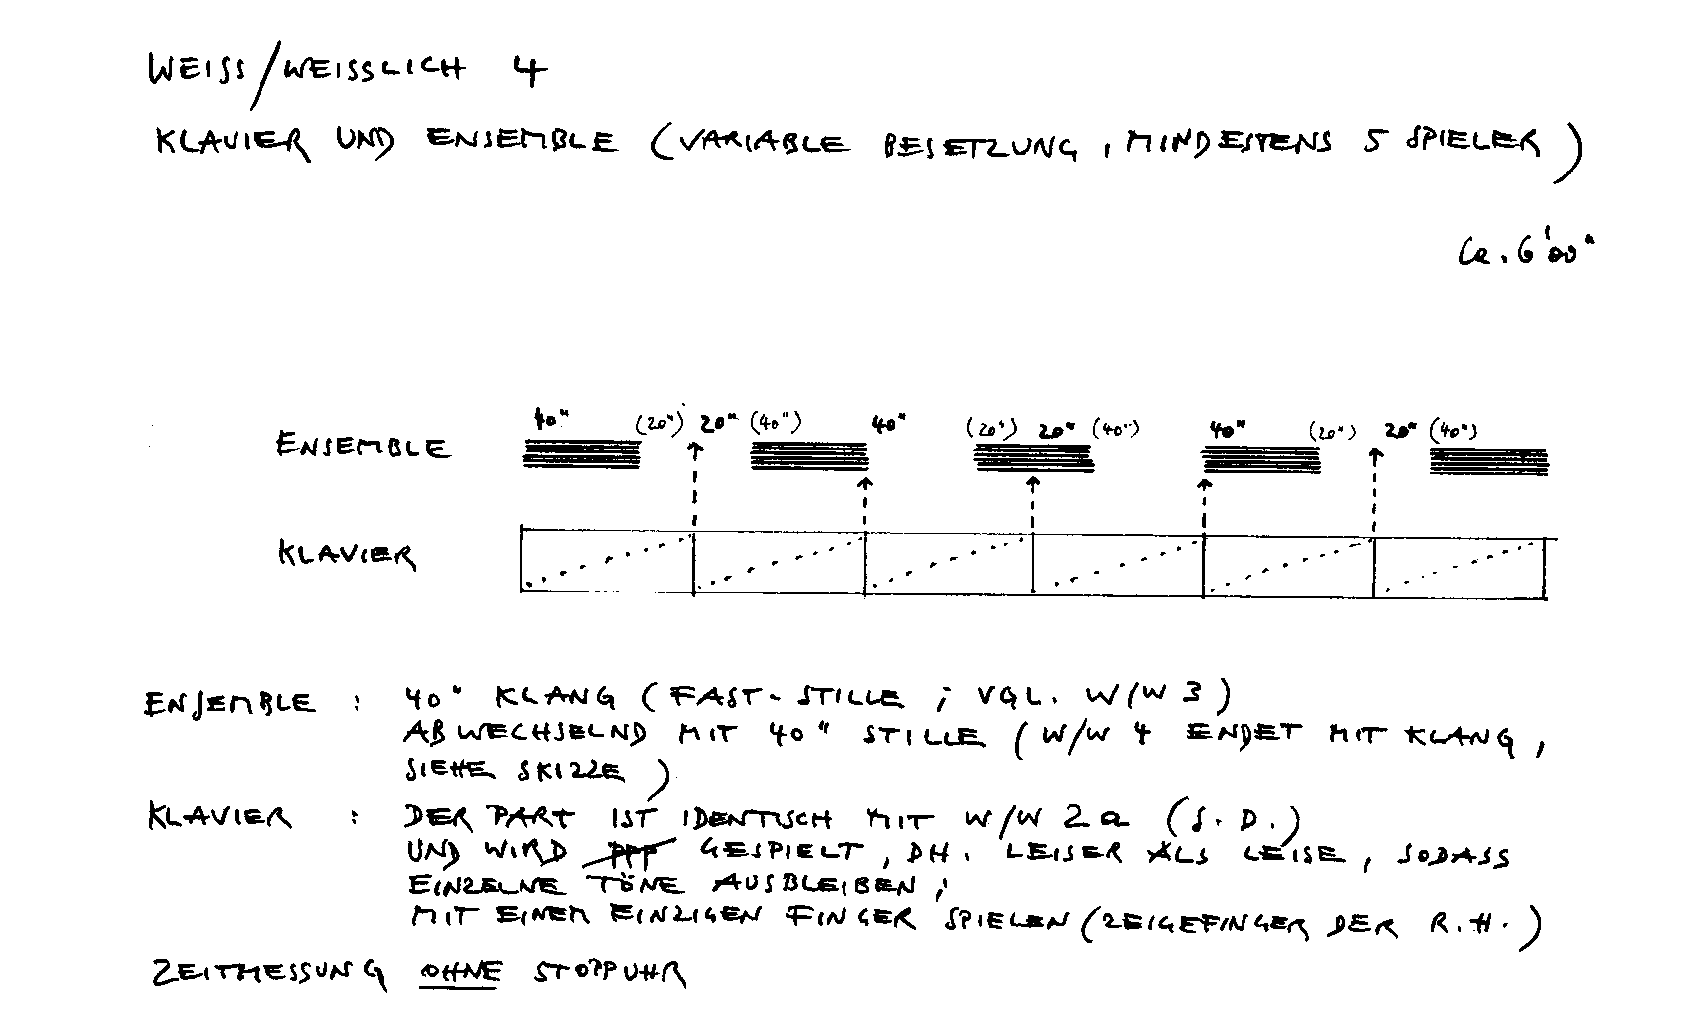 WEISS/WEISSLICH 4
KLAVIER UND ENSEMBLE (VARIABLE BESETZUNG, MINDESTENS 5 SPIELER)
Ca. 6'00"
40" (20") 20" (40") 40" (20") 20" (40") 40" (20") 20" (40")
ENSEMBLE
KLAVIER
ENSEMBLE : 40" KLANG (FAST-STILLE ; VGL. W/W 3)
ABWECHSELND MIT 40" STILLE (W/W 4 ENDET MIT KLANG,
SIEHE SKIZZE)
KLAVIER : DER PART IST IDENTISCH MIT W/W 2a (S.D.)
UND WIRD PPP GESPIELT, DH. LEISER ALS LEISE, SODASS
EINZELNE TÖNE AUSBLEIBEN;
MIT EINEM EINZIGEN FINGER SPIELEN (ZEIGEFINGER DER R.H.)
ZEITMESSUNG OHNE STOPPUHR